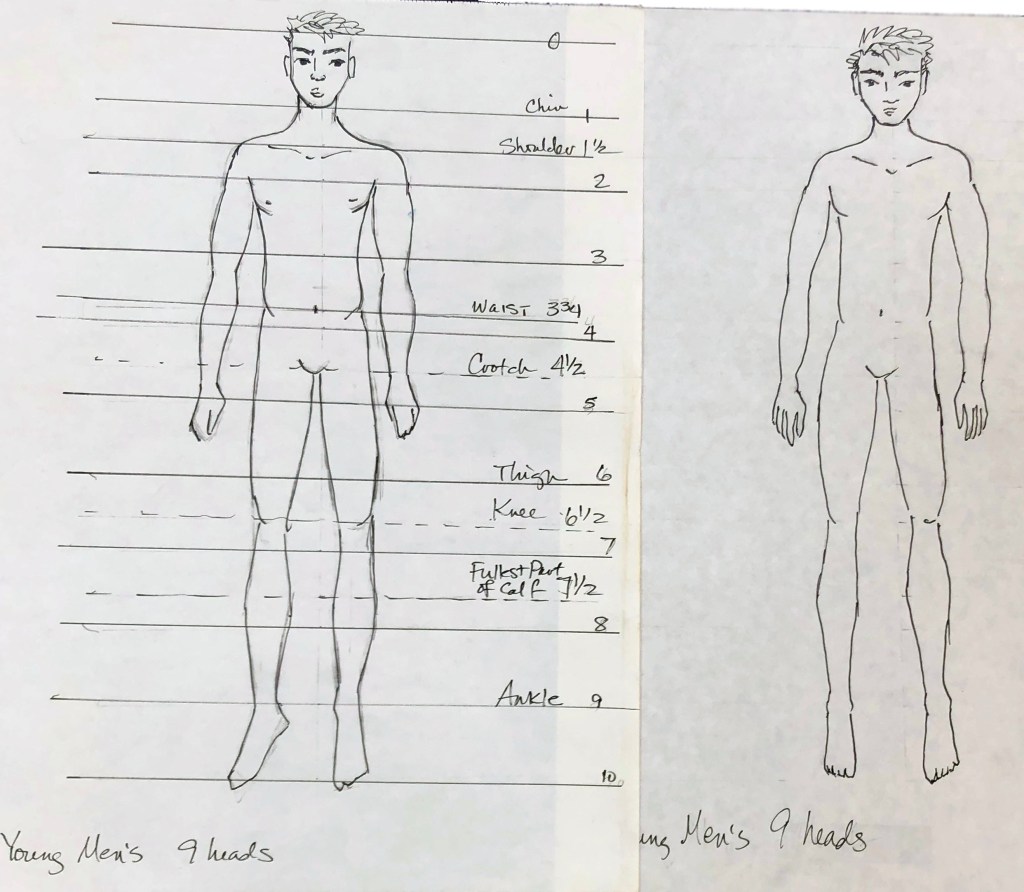 0
Chin 1
Shoulder 1½
2
3
Waist 3¾
4
Crotch 4½
5
Thigh 6
Knee 6½
7
Fullest Part
of Calf 7½
8
Ankle 9
10
Young Men's 9 heads
ung Men's 9 heads